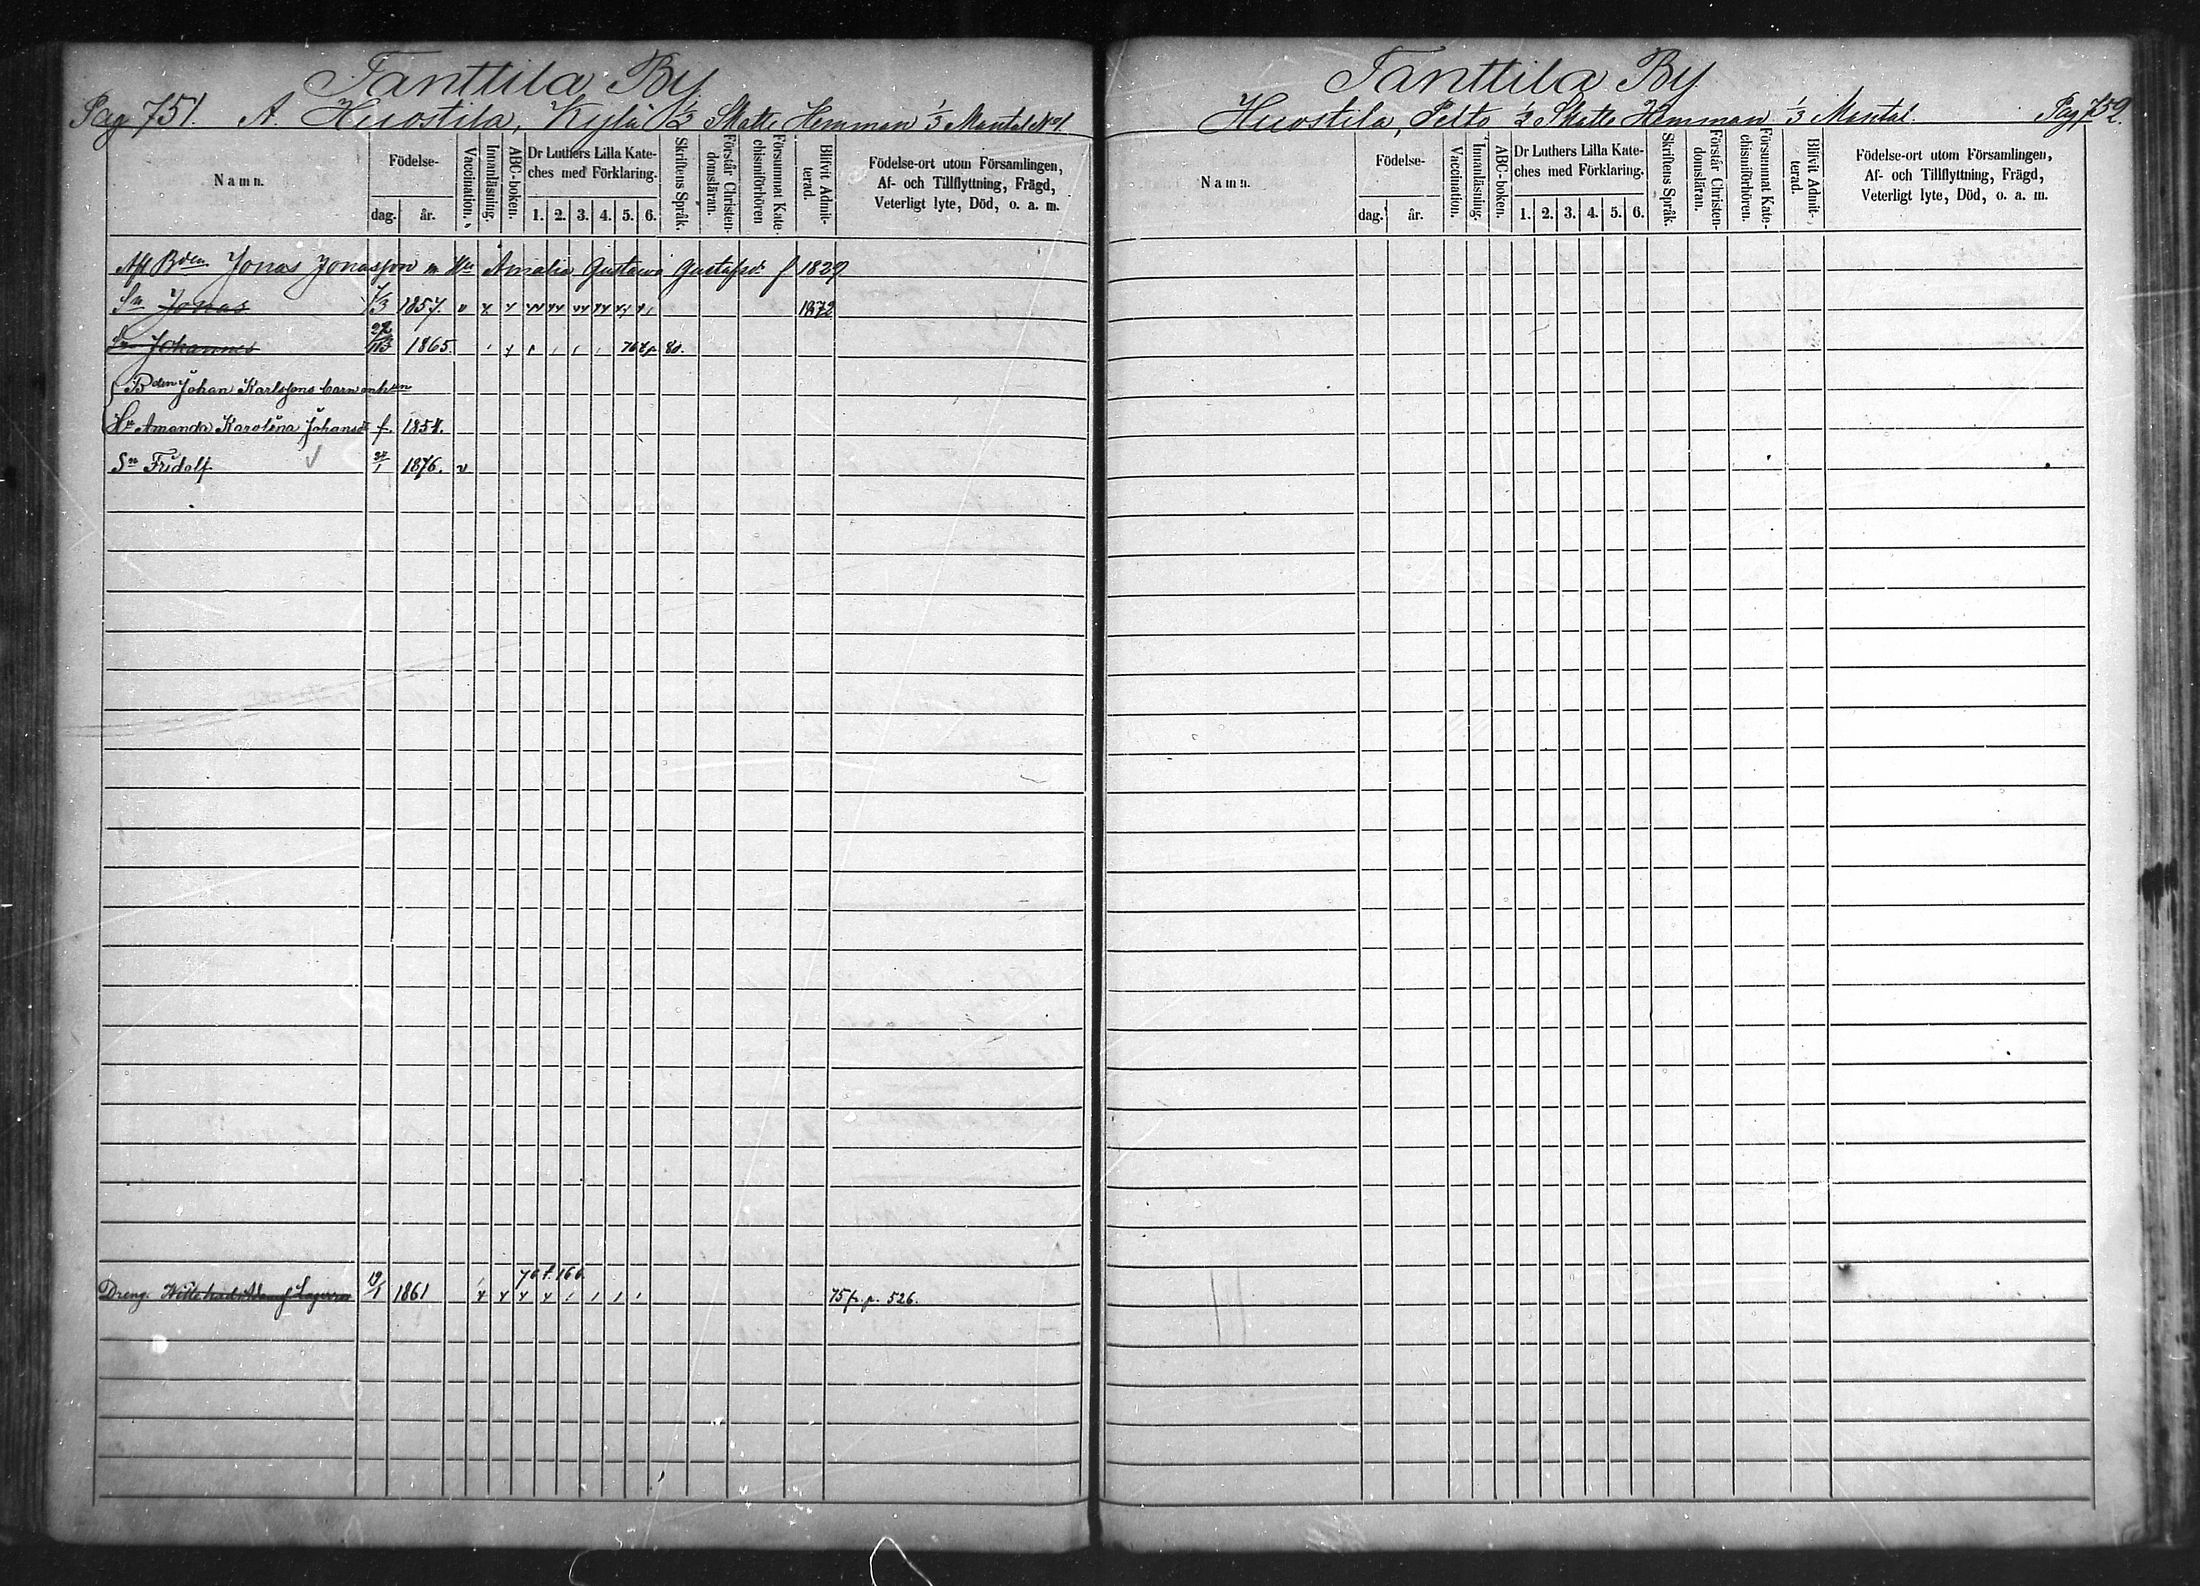 Tanttila By
Pag 751. A. Huostila, Kylä 1/2 Skatte Hemman 1/3 Mantal No 1.
Namn.
Födelse-
dag. år.
Vaccination.
Innanläsning.
ABC-boken.
Dr Luthers Lilla Kate-
ches med Förklaring.
1. 2. 3. 4. 5. 6.
Skriftens Språk.
Förstår Christen-
domsläran.
Försummat Kate-
chismiförhören
Blifvit Admit-
terad.
Födelse-ort utom Församlingen,
Af- och Tillflyttning, Frägd,
Veterligt lyte, Död, o. a. m.
Afl Bden Jonas Jonasson Amalia Gustava Gustafsdr f 1829
Sn Jonas 1/3 1857. 1872
Sn Johannes 1865. 80.
Bden Johan Karlssons barn
Hu Amanda Karolina Johansdr f. 1854.
Sn Fridolf 1876.
Dreng. 19/1 1861 75 fr. p. 526.
Tanttila By
Huostila, Pelto 1/2 Skatte Hemman 1/3 Mantal. Pag 752.
Namn.
Födelse-
dag. år.
Vaccination.
Innanläsning.
ABC-boken.
Dr Luthers Lilla Kate-
ches med Förklaring.
1. 2. 3. 4. 5. 6.
Skriftens Språk.
Förstår Christen-
domsläran.
Försummat Kate-
chismiförhören.
Blifvit Admit-
terad.
Födelse-ort utom Församlingen,
Af- och Tillflyttning, Frägd,
Veterligt lyte, Död, o. a. m.